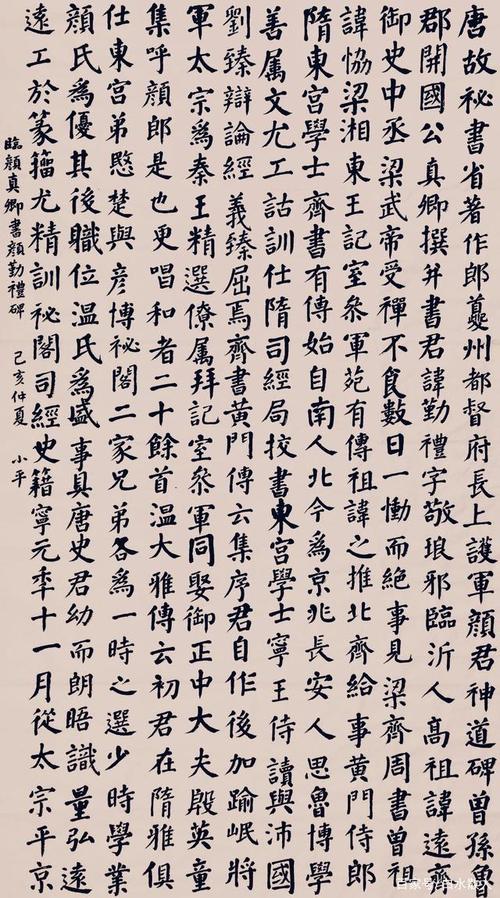 唐故祕書省著作郎夔州都督府長上護軍顏君神道碑曾孫魯
郡開國公真卿撰并書君諱勤禮字敬琅邪臨沂人高祖諱遠齊
御史中丞梁武帝受禪不食數日一慟而絕事見梁齊周書曾祖
諱恊梁湘東王記室叅軍苑有傳祖諱之推北齊給事黃門侍郎
隋東宮學士齊書有傳始自南人北今為京兆長安人思魯博學
善属文尤工詁訓仕隋司經局挍書東宮學士寧王侍讀與沛國
劉臻辯論經義臻屈焉齊書黃門傳云集序君自作後加踰岷將
軍太宗為秦王精選僚属拜記室叅軍同娶御正中大夫殷英童
集呼顏郎是也更唱和者二十餘首温大雅傳云初君在隋雅俱
仕東宮弟愍楚與彥博祕閣二家兄弟各為一時之選少時學業
顏氏為優其後職位温氏為盛事具唐史君幼而朗晤識量弘遠
遠工於篆籀尤精訓祕閣司經史籍寧元年十一月從太宗平京
臨顏真卿書顏勤禮碑 己亥仲夏 小平
百家号/白水